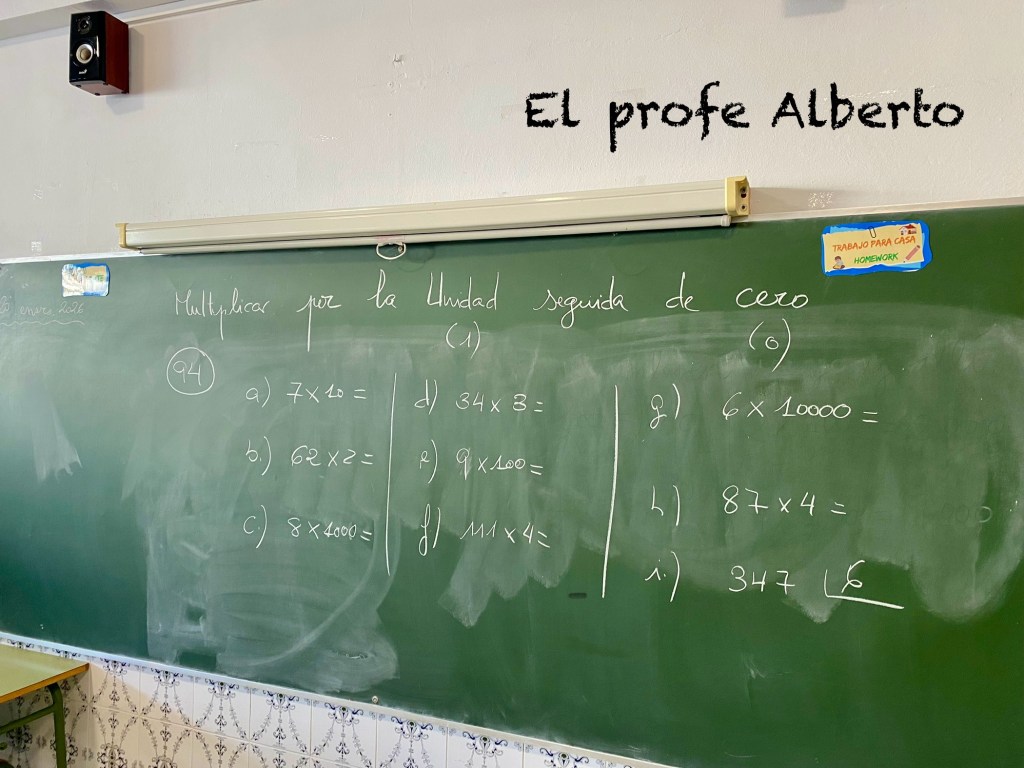 El profe Alberto
TRABAJO PARA CASA
HOMEWORK
enero 2026
Multiplicar por la Unidad seguida de cero
(1) (0)
94
a) 7 x 10 =
b.) 62 x 2 =
c) 8 x 1000 =
d) 34 x 3 =
e) 9 x 100 =
f) 111 x 4 =
g) 6 x 10000 =
h) 87 x 4 =
i.) 347 6